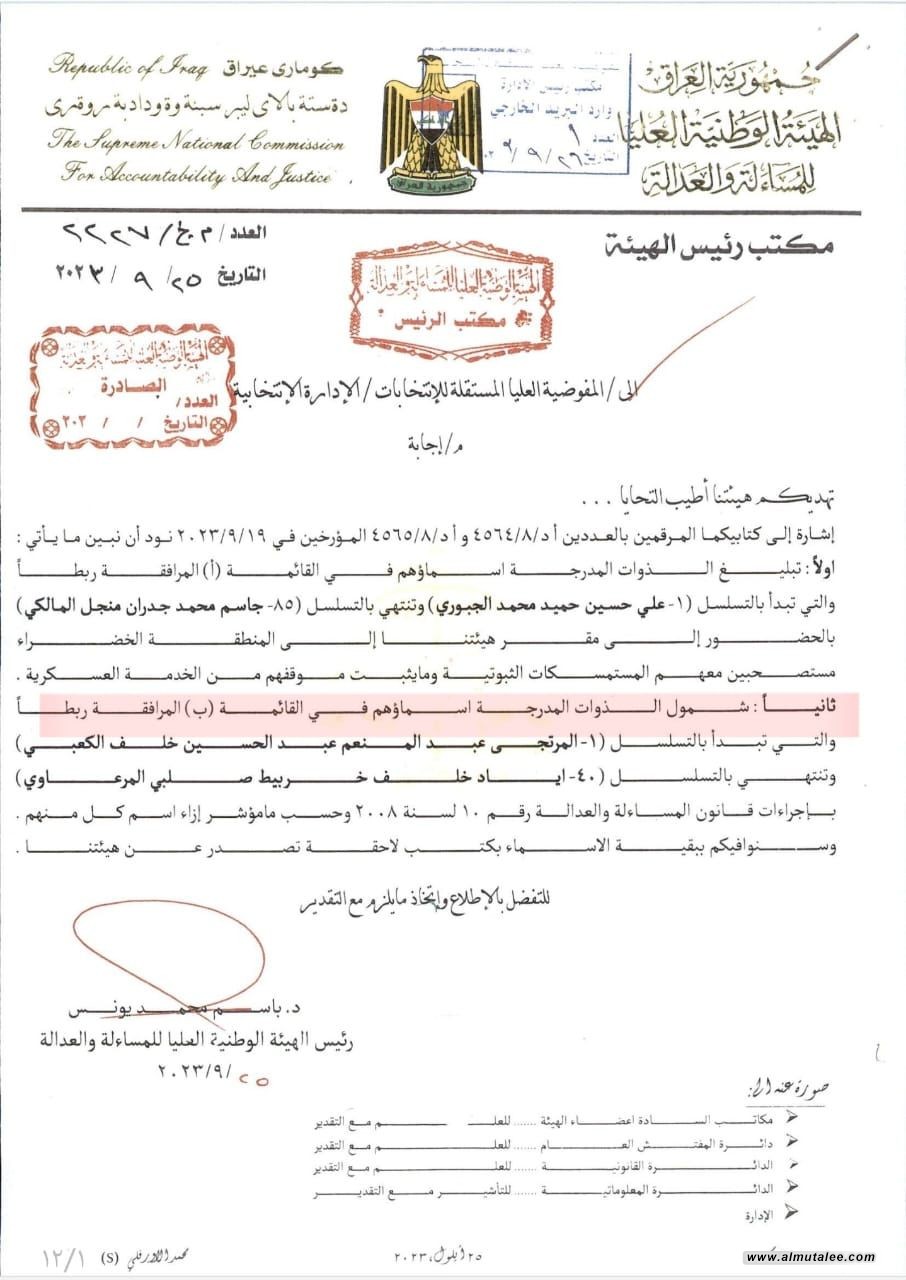 جمهورية العراق
الهيئة الوطنية العليا
للمساءلة والعدالة
Republic of Iraq كوماری عیراق
The Supreme National Commission
For Accountability And Justice
جمهورية العراق
مكتب رئيس الادارة
وارد البريد الخارجي
العدد ٩
التاريخ ٢٦/٩/
مكتب رئيس الهيئة
العدد / م.خ/ ٢٢٢٧
التاريخ ٢٥/ ٩ /٢٠٢٣
الهيئة الوطنية العليا للمساءلة والعدالة
مكتب الرئيس
الهيئة الوطنية العليا للمساءلة والعدالة
الصادرة
العدد/
التاريخ / / ٢٠٣
الى/ المفوضية العليا المستقلة للإنتخابات / الإدارة الإنتخابية
م/إجابة
تهديكم هيئتنا أطيب التحايا ...
إشارة إلى كتابيكما المرقمين بالعددين أ د/٤٥٦٤/٨ و أ د/٤٥٦٥/٨ المؤرخين في ٢٠٢٣/٩/١٩ نود أن نبين ما يأتي :
اولاً : تبليغ الذوات المدرجة اسماؤهم في القائمة (أ) المرافقة ربطاً
والتي تبدأ بالتسلسل (١- علي حسين حميد محمد الجبوري) وتنتهي بالتسلسل (٨٥- جاسم محمد جدران منجل المالكي)
بالحضور إلى مقر هيئتنا إلى المنطقة الخضراء
مستصحبين معهم المستمسكات الثبوتية ومايثبت موقفهم من الخدمة العسكرية .
ثانياً : شمول الذوات المدرجة اسماؤهم في القائمة (ب) المرافقة ربطاً
والتي تبدأ بالتسلسل (١- المرتجى عبد المنعم عبد الحسين خلف الكعبي)
وتنتهي بالتسلسل (٤٠- اياد خلف خربيط صلبي المرعاوي)
بإجراءات قانون المساءلة والعدالة رقم ١٠ لسنة ٢٠٠٨ وحسب مامؤشر إزاء اسم كل منهم .
وسنوافيكم ببقية الاسماء بكتب لاحقة تصدر عن هيئتنا .
للتفضل بالإطلاع وإتخاذ مايلزم مع التقدير
د. باسم محمد يونس
رئيس الهيئة الوطنية العليا للمساءلة والعدالة
٢٠٢٣/٩/٢٥
صورة عنه الى:
مكاتب السادة اعضاء الهيئة ...... للعلم مع التقدير
دائرة المفتش العام ...... للعلم مع التقدير
الدائرة القانونية ...... للعلم مع التقدير
الدائرة المعلوماتية ...... للتأشير مع التقدير
الإدارة
١٢/١
(S)
٢٥ أيلول، ٢٠٢٣
www.almutalee.com